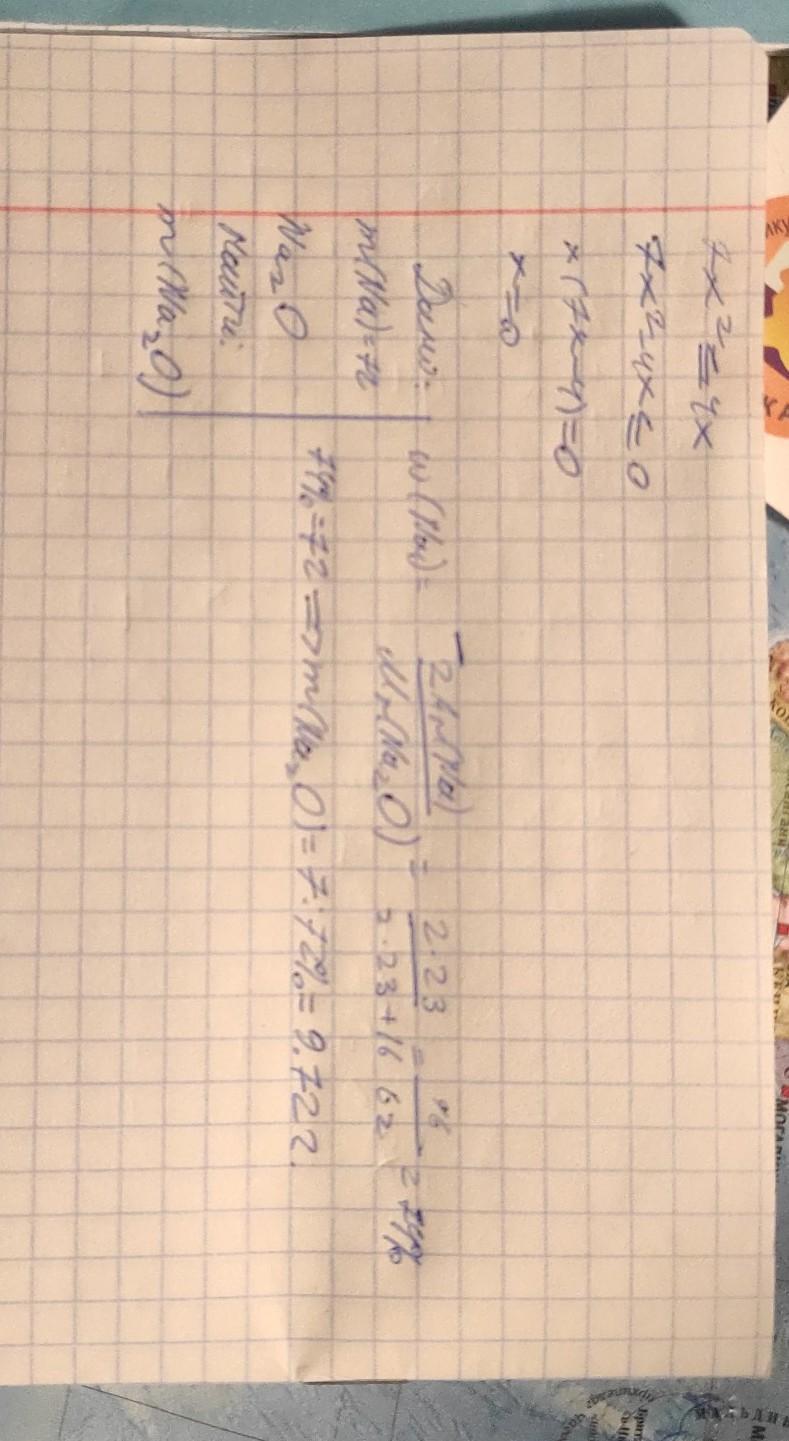 7x² ≤ 4x
7x²-4x ≤ 0
x(7x-4)=0
x=0
Дано:
m(Na)=7г
Na₂O
Найти:
m(Na₂O)
ω(Na) = 2·Ar(Na) / Mr(Na₂O) = 2·23 / 2·23+16 = 46 / 62 = 74%
74% = 7г => m(Na₂O) = 7:72% = 9.72г.